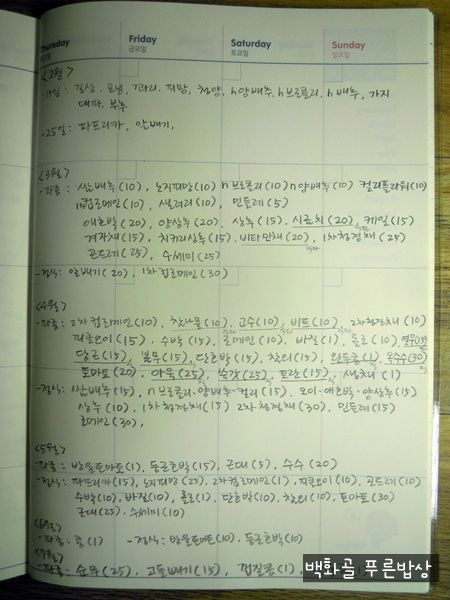 Thursday Friday Saturday Sunday
금요일 토요일 일요일
<2월>
대파, 부추
-25일: 파프리카, 알배기,
<3월>
-파종: 쌈배추(10), 노지피망(10) n브로콜리(10) n양배추(10) 컬리플라워(10)
컬로메인(10), 샐러리(10), 민들레(5)
애호박(20), 양상추(20), 상추(15), 시금치(20), 케일(15)
겨자채(15), 치커리상추(15), 비타민채(20), 1차청경채(25)
곤드레(25), 수세미(25)
-정식: 알배기(20), 1차컬로메인(30)
<4월>
-파종: 2차컬로메인(10), 참나물(10), 고수(10), 비트(10), 2차청경채(10)
피클오이(15), 수박(15), 로메인(10), 바질(1), 콜로(10)
당근(15), 봄무(15), 단호박(15), 참외(15), 완두콩(1), 옥수수(30)
토마토(20), 아욱(25), 쑥갓(25), 토란(15), 생채(1)
-정식: 쌈배추(15), n브로콜리·양배추·컬리(15), 오이·애호박·양상추(15)
상추(10), 1차청경채(15) 2차청경채(30), 민들레(15)
로메인(30),
<5월>
-파종: 방울토마토(1), 둥근호박(15), 근대(5), 수수(20)
-정식: 파프리카(15), 노지피망(25), 2차컬로메인(1), 피클오이(10), 곤드레(10)
수박(10), 바질(10), 콜로(1), 단호박(10), 참외(10), 토마토(30)
근대(25), 수세미(10)
<6월>
-파종: 콩(1) -정식: 방울토마토(10), 둥근호박(10)
<7월>
-파종: 순무(25), 고들빼기(15), 껍질콩(1),
백화골 푸른밥상